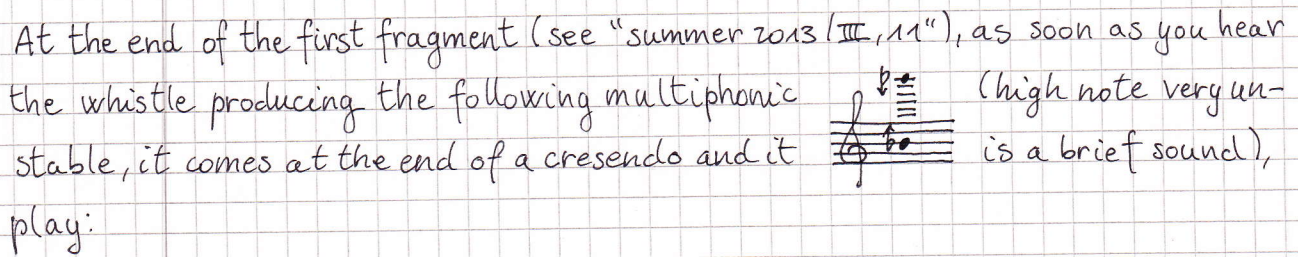 At the end of the first fragment (see "summer 2013/III,11"), as soon as you hear
the whistle producing the following multiphonic (high note very un-
stable, it comes at the end of a cresendo and it is a brief sound),
play: